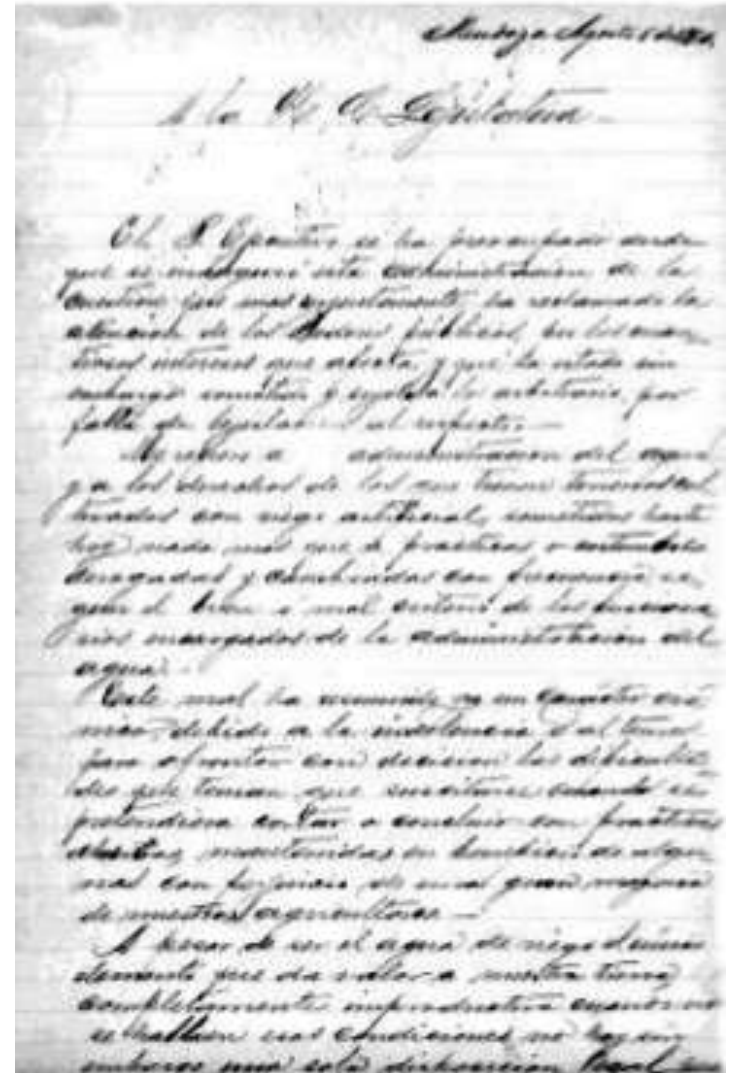 Mendoza Agosto
A la H. C. Lejislatura
El P. Ejecutivo se ha preocupado desde
que se inauguró esta administracion de la
cuestion que mas urjentemente ha reclamado la
atencion de los Poderes públicos, por los cuan
tiosos intereses que afecta, y que ha estado sin
embargo sometida y sujeta a lo arbitrario, por
falta de lejislacion al respecto.—
Me refiero a administracion del agua
y a los derechos de los que tienen terrenos cul
tivados con riego artificial, sometidos hasta
hoy nada mas que à practicas o costumbres
y cambiadas con frecuencia se
gun el buen o mal criterio de los funciona
rios encargados de la administracion del
agua.
Este mal ha asumido ya un caracter cró
nico, debido a la indolencia ó al temor
para afrontar con decision las dificulta
des que tenian que suscitarse cuando se
pretendiera cortar o concluir con practicas
abusivas, mantenidas en beneficio de algu
nos con perjuicio de una gran mayoria
de nuestros agricultores—
A pesar de ser el agua de riego el único
elemento que da valor a nuestra tierra,
completamente improductiva cuando no
se hallan esas condiciones no hay sin
embargo una sola disposicion legal